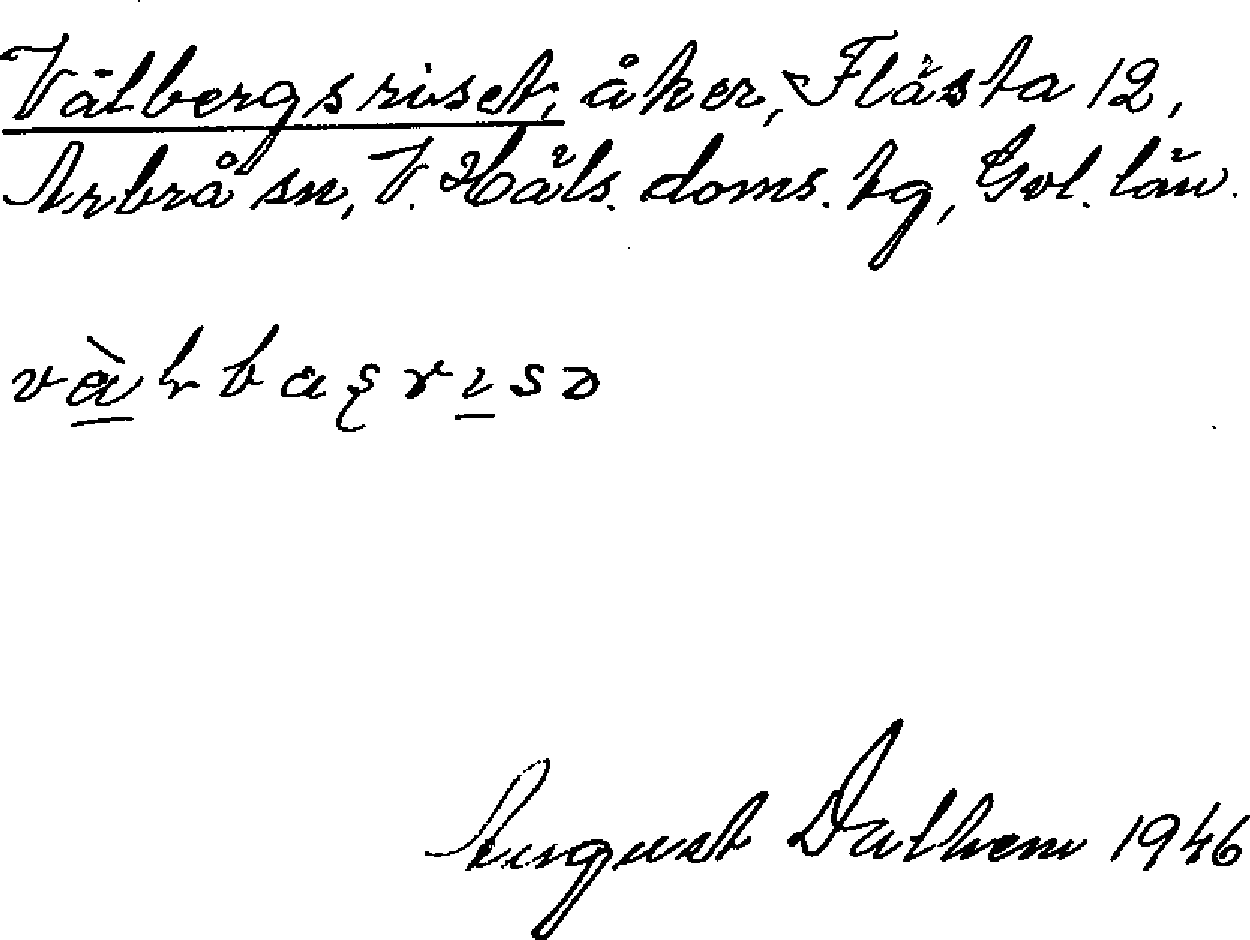 Välbergsriset, åker, Flästa 12,
Arbrå sn, V. Häls. doms. hg, Gvl. län.
August Dalhem 1946